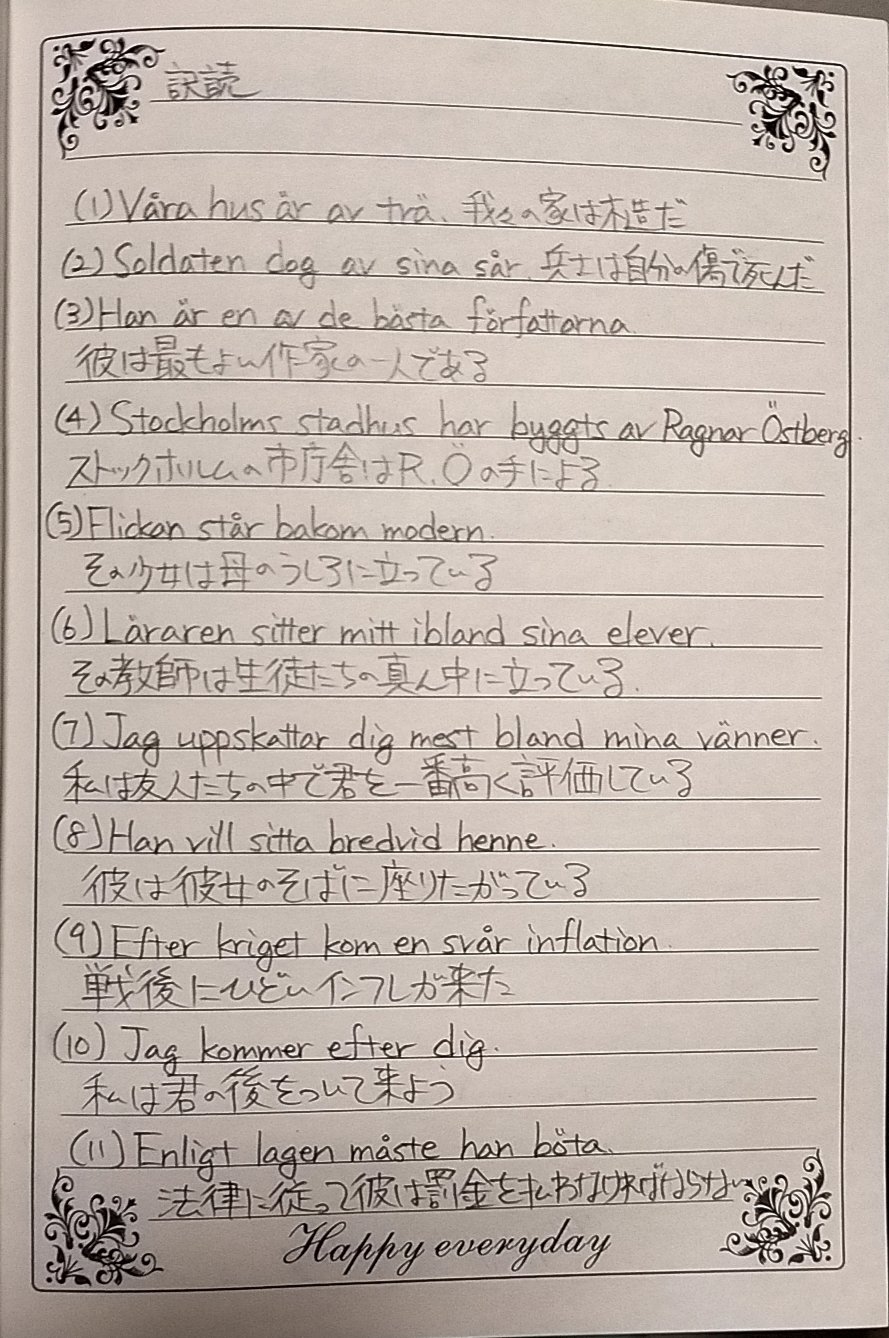 訳読
(1) Våra hus är av trä. 我々の家は木造だ
(2) Soldaten dog av sina sår. 兵士は自分の傷で死んだ
(3) Han är en av de bästa författarna
彼は最もよい作家の一人である
(4) Stockholms stadhus har byggts av Ragnar Östberg.
ストックホルムの市庁舎はR.Öの手による
(5) Flickan står bakom modern.
その少女は母のうしろに立っている
(6) Läraren sitter mitt ibland sina elever.
その教師は生徒たちの真ん中に立っている.
(7) Jag uppskattar dig mest bland mina vänner.
私は友人たちの中で君を一番高く評価している
(8) Han vill sitta bredvid henne.
彼は彼女のそばに座りたがっている
(9) Efter kriget kom en svår inflation.
戦後にひどいインフレが来た
(10) Jag kommer efter dig.
私は君の後をついて来よう
(11) Enligt lagen måste han böta.
法律に従って彼は罰金を払わなければならない
Happy everyday